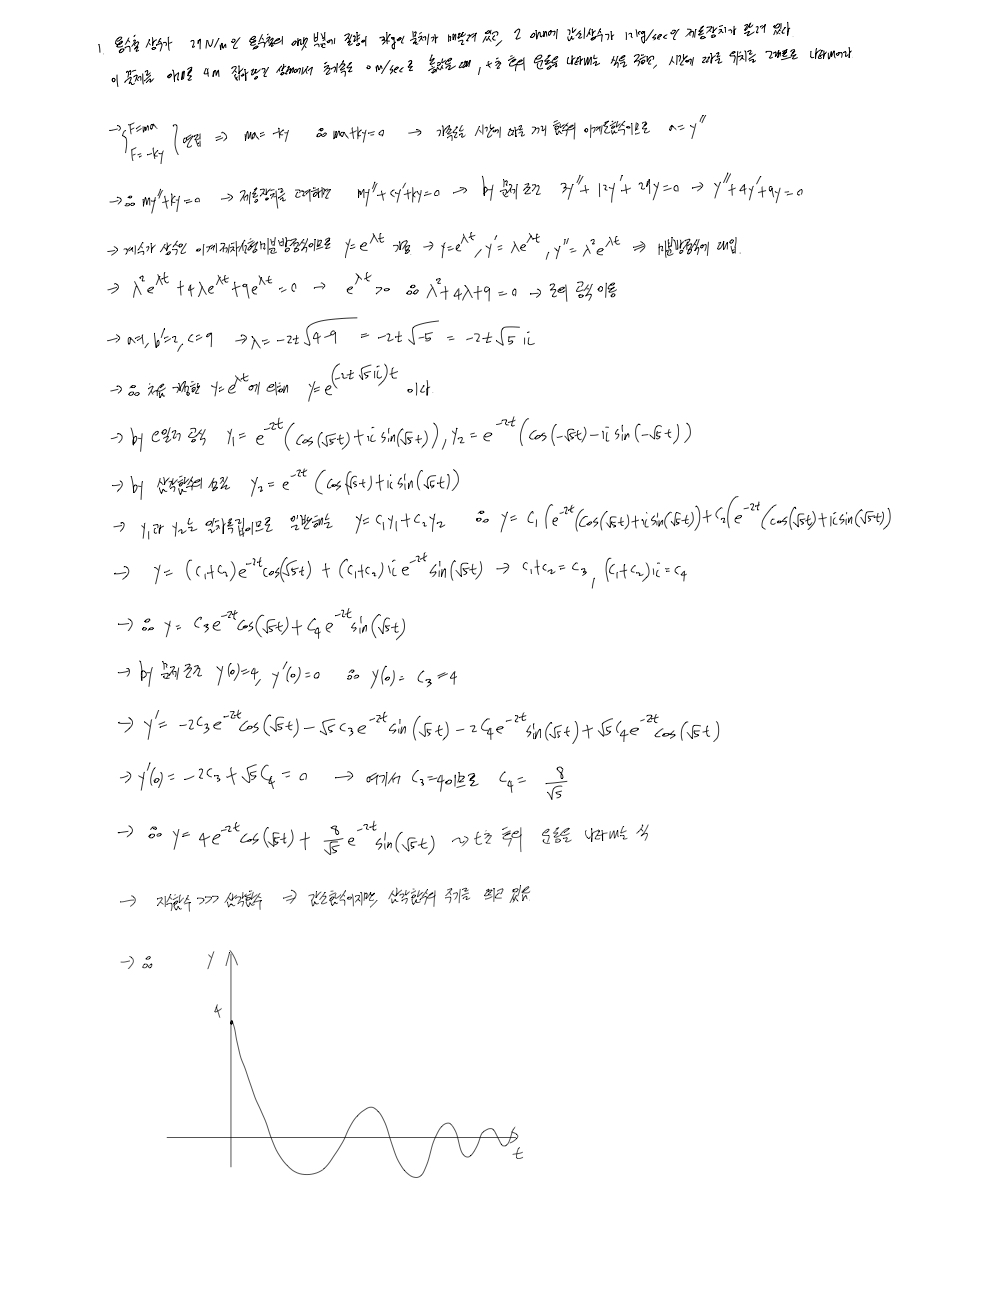 1 용수철 상수가 29N/m인 용수철의 아랫 부분에 질량이 3kg인 물체가 매달려 있고, 그 아래에 감쇠상수가 12kg/sec인 제동장치가 달려 있다
이 물체를 아래로 4m 잡아당긴 상태에서 초기속도 0m/sec로 놓았을 때, t초 후의 운동을 나타내는 식을 구하고, 시간에 따른 위치를 그래프로 나타내어라
→ { F=ma F=-ky } 연립 ⇒ ma=-ky ∴ ma+ky=0 → 가속도는 시간에 따른 거리 함수의 이계도함수이므로 a=y''
→ ∴ my''+ky=0 → 제동장치를 고려하면 my''+cy'+ky=0 → by 문제 조건 3y''+12y'+29y=0 → y''+4y'+9y=0
→ 계수가 상수인 이계제차선형미분방정식이므로 y=e^λt 가정 → y=e^λt, y'=λe^λt, y''=λ²e^λt ⇒ 미분방정식에 대입
→ λ²e^λt+4λe^λt+9e^λt=0 → e^λt>0 ∴ λ²+4λ+9=0 → 근의 공식 이용
→ a=1, b'=2, c=9 → λ=-2±√4-9 = -2±√-5 = -2±√5 i
→ ∴ 처음 가정한 y=e^λt에 의해 y=e^(-2±√5 i)t 이다.
→ by 오일러 공식 y₁=e^-2t(cos(√5t)+i sin(√5t)), y₂=e^-2t(cos(-√5t)-i sin(-√5t))
→ by 삼각함수의 성질 y₂=e^-2t(cos(√5t)+i sin(√5t))
→ y₁과 y₂는 일차독립이므로 일반해는 y=C₁y₁+C₂y₂ ∴ y=C₁(e^-2t(cos(√5t)+i sin(√5t))+C₂(e^-2t(cos(√5t)+i sin(√5t))
→ y=(C₁+C₂)e^-2t cos(√5t)+(C₁+C₂)i e^-2t sin(√5t) → C₁+C₂=C₃, (C₁+C₂)i=C₄
→ ∴ y=C₃e^-2t cos(√5t)+C₄e^-2t sin(√5t)
→ by 문제 조건 y(0)=4, y'(0)=0 ∴ y(0)=C₃=4
→ y'=-2C₃e^-2t cos(√5t)-√5C₃e^-2t sin(√5t)-2C₄e^-2t sin(√5t)+√5C₄e^-2t cos(√5t)
→ y'(0)=-2C₃+√5C₄=0 → 여기서 C₃=4이므로 C₄=8/√5
→ ∴ y=4e^-2t cos(√5t)+8/√5 e^-2t sin(√5t) ~> t초 후의 운동을 나타내는 식
→ 지수함수 >>> 삼각함수 ⇒ 감소함수이지만, 삼각함수의 주기를 띄고 있음
→ ∴
y
4
t